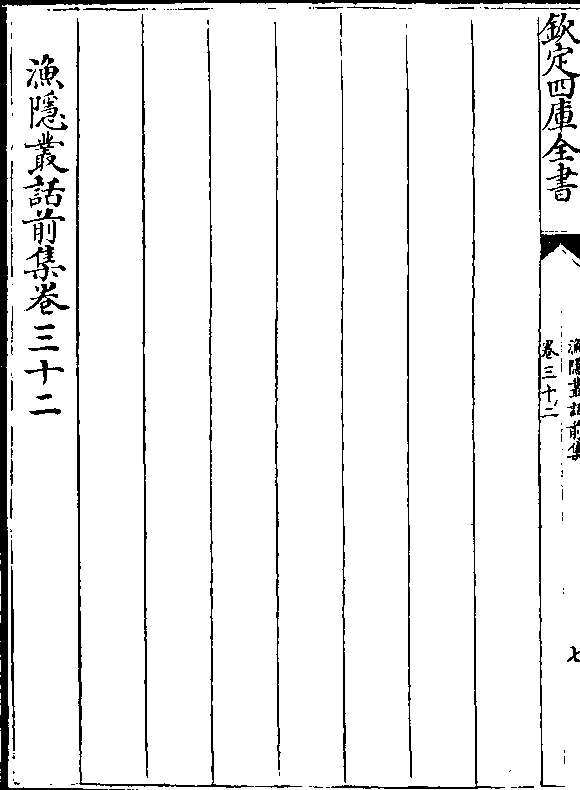 欽定四庫全書
漁隱叢話前集
卷三十二
七
漁隱叢話前集卷三十二